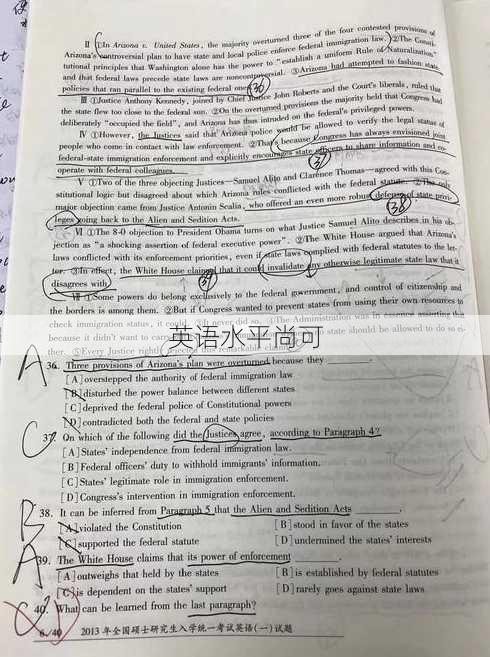 Ⅱ ①In Arizona v. United States, the majority overturned three of the four contested provisions of
Arizona's controversial plan to have state and local police enforce federal immigration law. ②The Consti-
tutional principles that Washington alone has the power to "establish a uniform Rule of Naturalization"
and that federal laws precede state laws are noncontroversial. ③Arizona had attempted to fashion state
policies that ran parallel to the existing federal ones. (36)
Ⅲ ①Justice Anthony Kennedy, joined by Chief Justice John Roberts and the Court's liberals, ruled that
the state flew too close to the federal sun. ②On the overturned provisions the majority held that Congress had
deliberately "occupied the field", and Arizona has thus intruded on the federal's privileged powers.
Ⅳ ①However, the Justices said that Arizona police would be allowed to verify the legal status of
people who come in contact with law enforcement. ②That's because Congress has always envisioned joint
federal-state immigration enforcement and explicitly encourages state officers to share information and co-
operate with federal colleagues. (37)
Ⅴ ①Two of the three objecting Justices—Samuel Alito and Clarence Thomas—agreed with this Con-
stitutional logic but disagreed about which Arizona rules conflicted with the federal statute. ②The only
major objection came from Justice Antonin Scalia, who offered an even more robust defense of state privi-
leges going back to the Alien and Sedition Acts. (38)
Ⅵ ①The 8-0 objection to President Obama turns on what Justice Samuel Alito describes in his ob-
jection as "a shocking assertion of federal executive power". ②The White House argued that Arizona's
laws conflicted with its enforcement priorities, even if state laws complied with federal statutes to the let-
ter. ③In effect, the White House claimed that it could invalidate any otherwise legitimate state law that it
disagrees with. (39)
Ⅶ ①Some powers do belong exclusively to the federal government, and control of citizenship and
the borders is among them. ②But if Congress wanted to prevent states from using their own resources to
check immigration status, it could. ③It never did so. ④The Administration was in essence asserting that
because it didn't want to carry state should be allowed to do so ei-
ther. ⑤Every Justice rightly rejected this remarkable claim.
英语水平尚可
A 36. Three provisions of Arizona's plan were overturned because they ______.
[A]overstepped the authority of federal immigration law
[B]disturbed the power balance between different states
[C]deprived the federal police of Constitutional powers
[D]contradicted both the federal and state policies
C 37. On which of the following did the Justices agree, according to Paragraph 4?
[A]States' independence from federal immigration law.
[B]Federal officers' duty to withhold immigrants' information.
[C]States' legitimate role in immigration enforcement.
[D]Congress's intervention in immigration enforcement.
B 38. It can be inferred from Paragraph 5 that the Alien and Sedition Acts ______.
[A]violated the Constitution [B]stood in favor of the states
[C]supported the federal statute [D]undermined the states' interests
A 39. The White House claims that its power of enforcement ______.
[A]outweighs that held by the states [B]is established by federal statutes
[C]is dependent on the states' support [D]rarely goes against state laws
40. What can be learned from the last paragraph?
2013年全国硕士研究生入学统一考试英语(一)试题